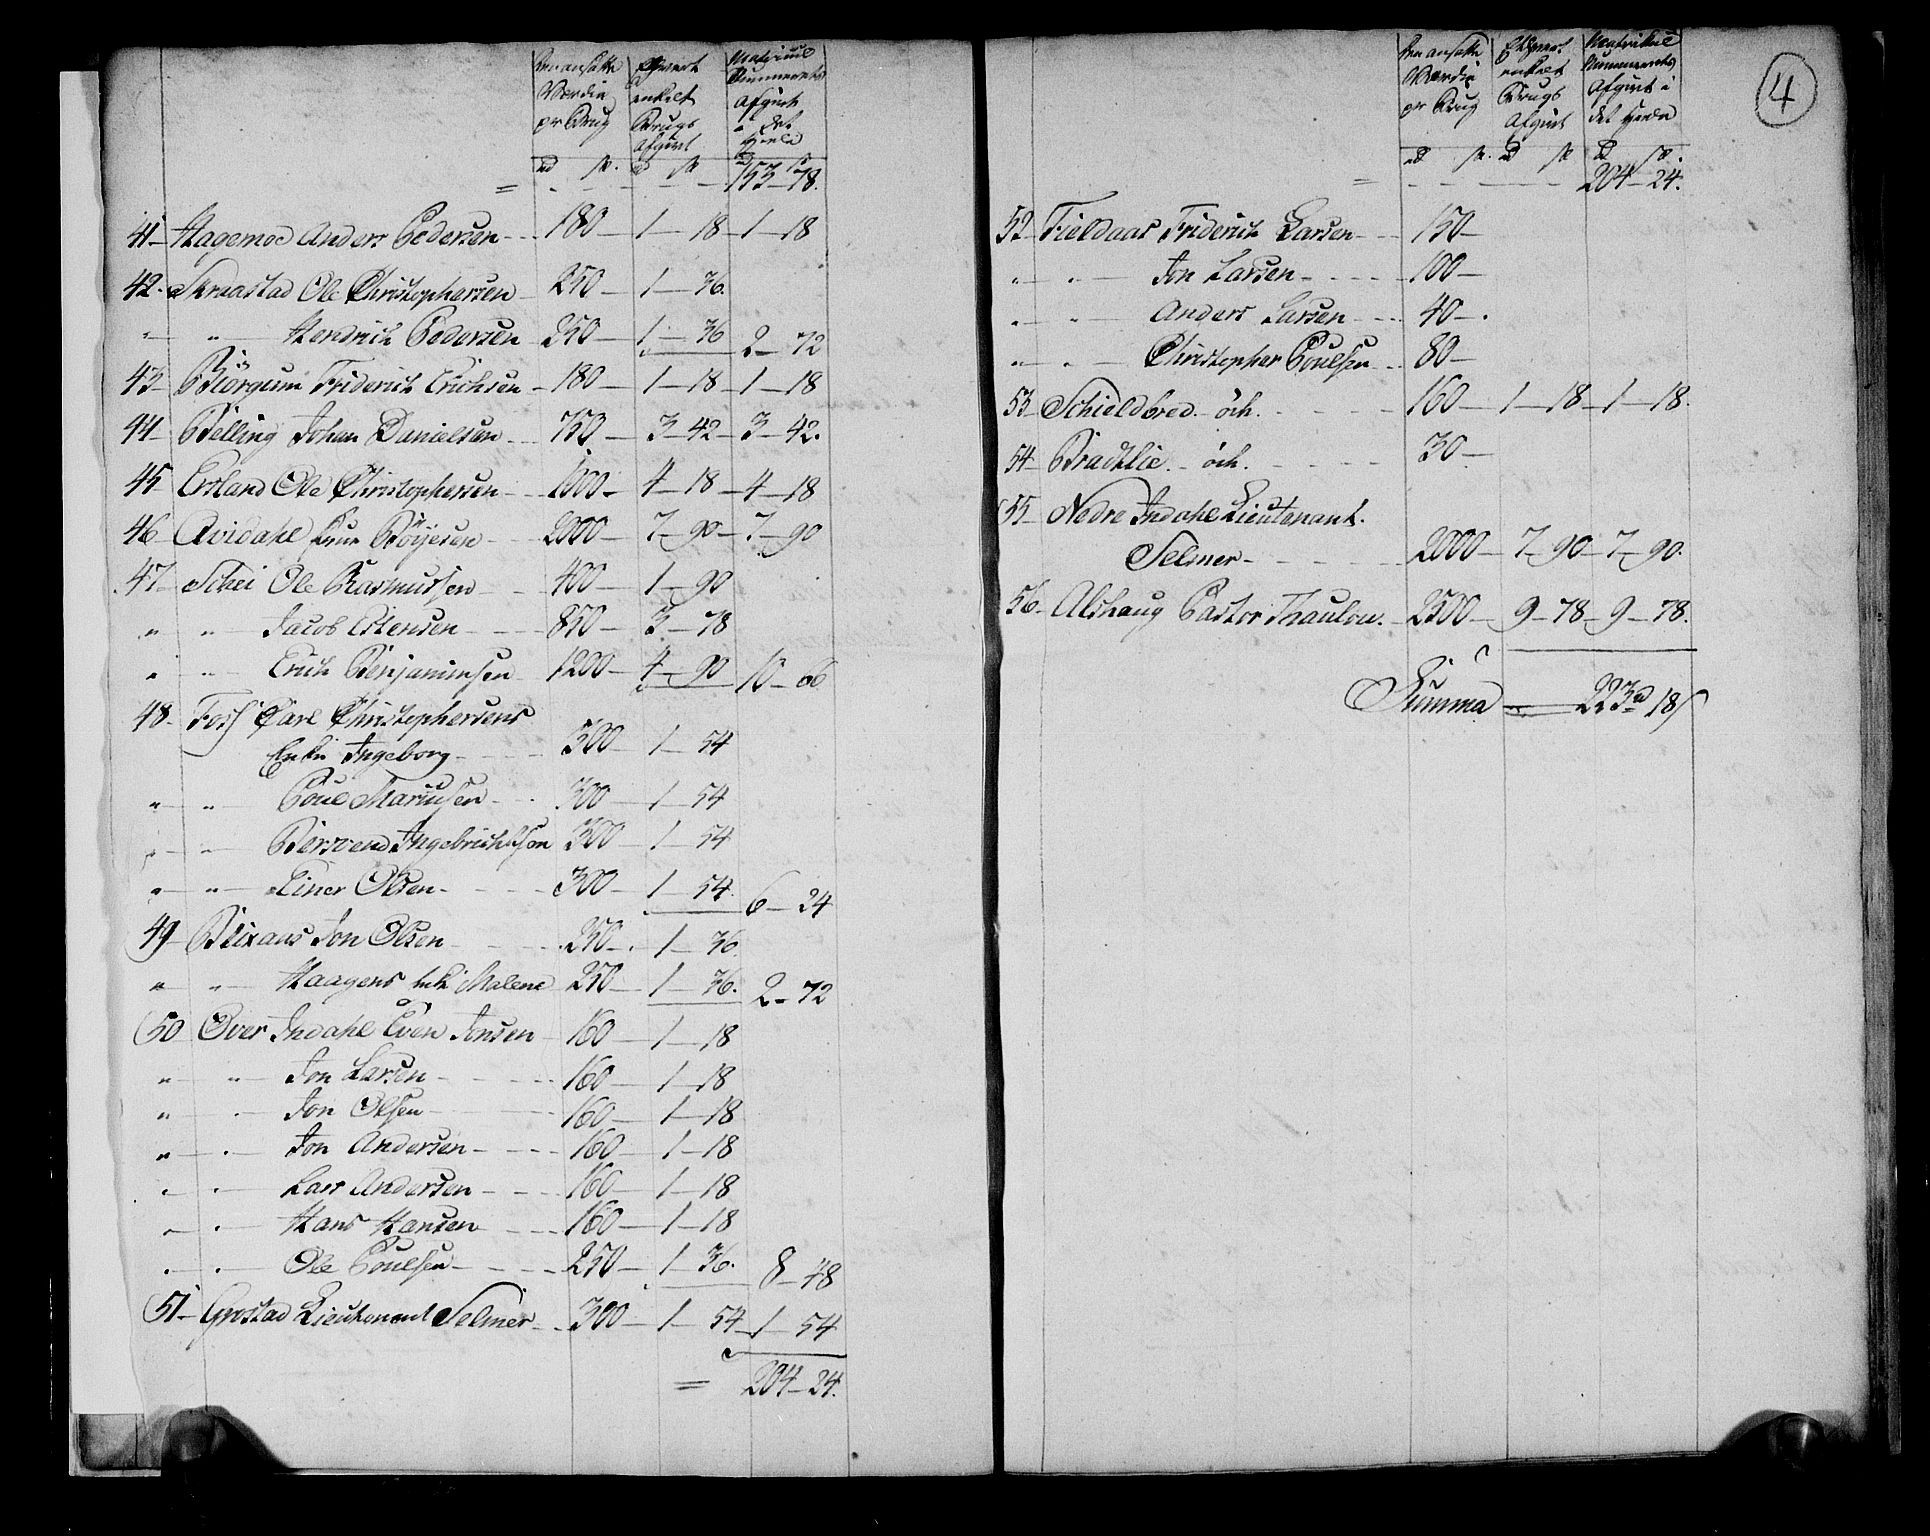 Den ansatte Værdie pr Brug
Ethvert enkelt Brugs Afgivt
Matricul Nummerets Afgivt i det Heele
rd s. rd s rd s
= - - - - 153-78.
41- Hagemoe Anders Pedersen - 180- 1-18-1-18
42- Skraastad Ole Christophersen - 250- 1-36.
" " - Hendrich Pedersen 250- 1-36 2-72
43- Biörgum Friderich Erichsen - 180- 1-18-1-18
44- Belling Johan Danielsen - 750- 3-42-3-42.
45- Ertland Ole Christophersen - 1000- 4-18-4-18
46- Qvidahl Böyesen - 2000- 7-90-7-90
47- Schei Ole Rasmussen - 400- 1-90
" " - Jacob Estensen - 850- 3-78
" " - Erich Benjaminsen - 1200- 4-90 10-66
48- Foss Carl Christophersens
Enke Ingeborg - 300- 1-54
" " - Poul Mariusen - 300- 1-54
" " - Bersvend Ingebrichtsen 300- 1-54
" " - Einer Olsen - 300- 1-54. 6-24
49- Blixaas Jon Olsen - 250- 1-36.
" " - Haagens Enke Malene 250- 1-36. 2-72
50 Over Indahl Even Jonsen - 160- 1-18
" " - Jon Larsen - 160- 1-18
" " - Jon Olsen - 160- 1-18
" " - Jon Andersen - 160- 1-18
" " - Lars Andersen - 160- 1-18
" " - Hans Hansen - 160- 1-18
" " - Ole Poulsen - 250- 1-36. 8-48
51- Grostad Lieutenant Selmer - 300- 1-54-1-54
= 204-24.
4
Den ansatte Værdie pr Brug
Ethvert enkelt Brugs Afgivt
Matricul Nummerets Afgivt i det Heele
rd s. rd s rd s.
= - - - - 204-24.
52- Fieldaas Friderich Larsen - 150-
" " - Jon Larsen - 100-
" " - Anders Larsen - 40-
" " - Christopher Poulsen - 80-
53- Schieldbred - öde. - 160- 1-18-1-18.
54- Bradtlie - öde. - 30-
55- Nedre Indahl Lieutenant
Selmer - 2000- 7-90-7-90.
56- Alshaug Pastor Thaulou. - 2500- 9-78-9-78.
Summa = 223rd 18s